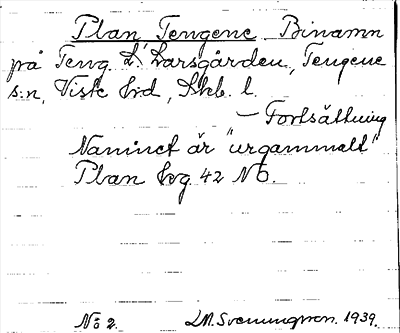 Plan Tengene Binamn
på Teng. L. Larsgården, Tengene
s:n, Viste hd, Skb. l.
– Fortsättning
Namnet är "urgammalt"
Plan hvg 42 NO.
No 2. LM. Svenungson. 1939.